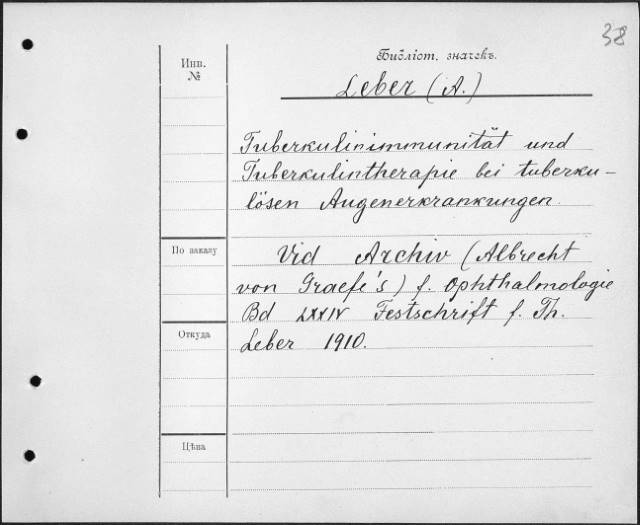 38
Библіот. значекъ.
Инв.
№
Leber (A.)
Tuberkulinimmunität und
Tuberkulintherapie bei tuberku-
lösen Augenerkrankungen.
По заказу
Vid Archiv (Albrecht
von Graefe's) f. Ophthalmologie
Bd LXXIV Festschrift f. Th.
Откуда
Leber 1910.
Цѣна